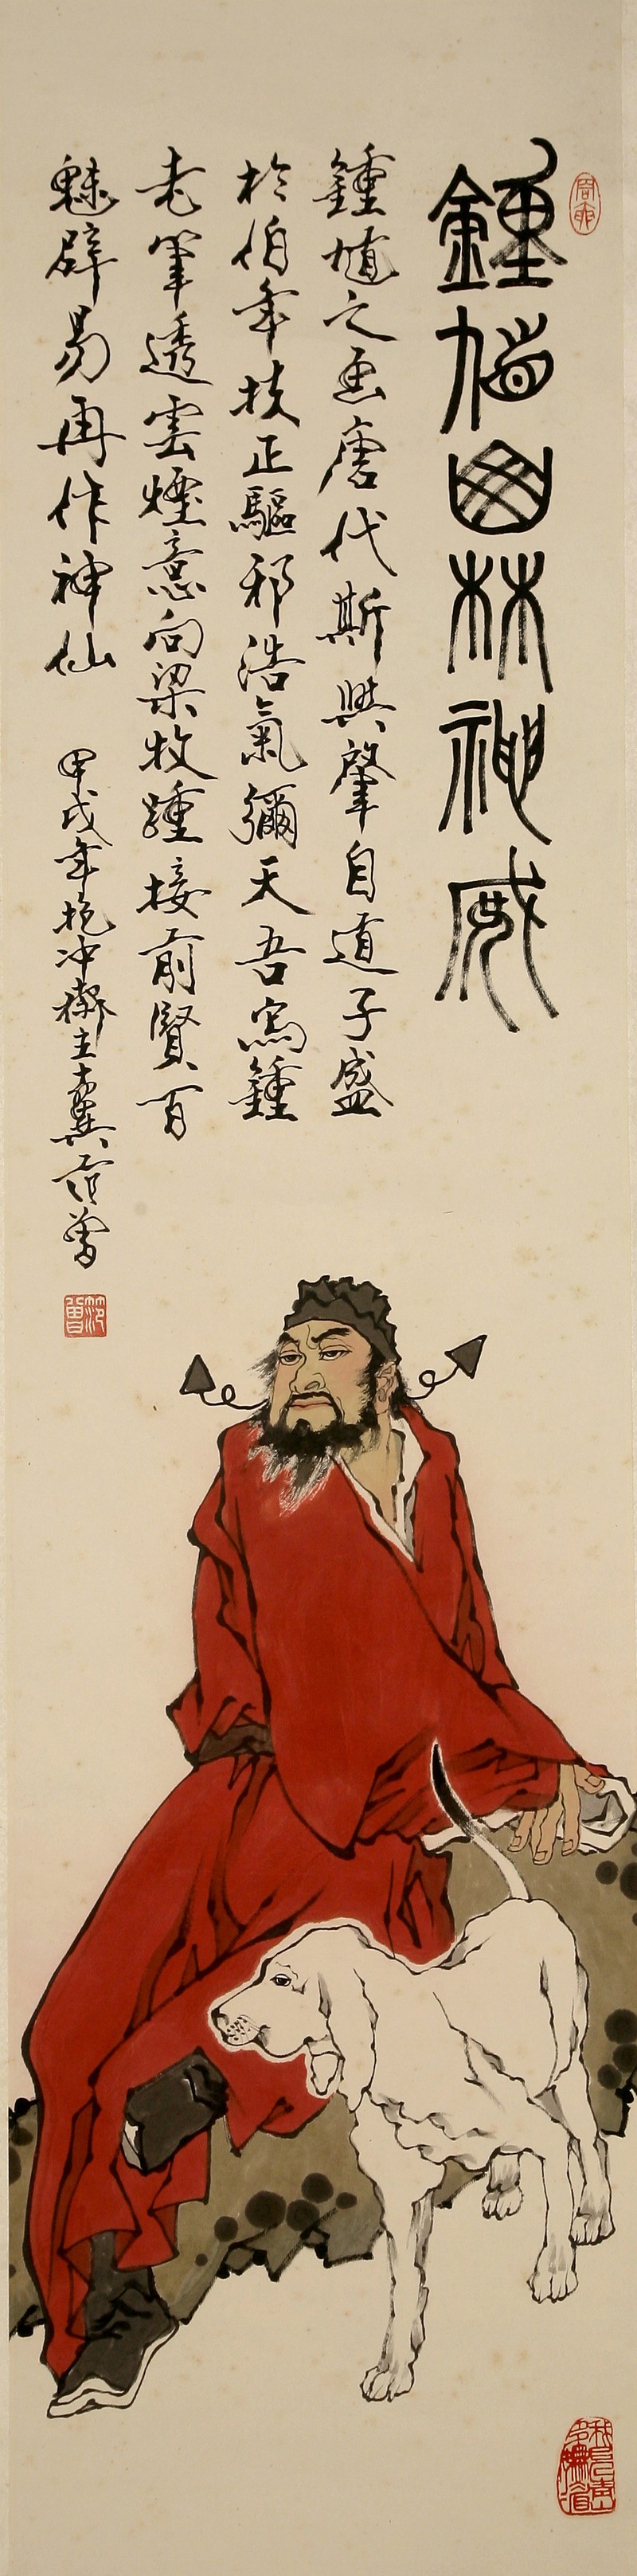 鍾馗山林神威
鍾馗之画唐代斯興肇自道子盛
於伯年扶正驅邪浩氣彌天吾寫鍾
老筆透雲煙意向梁牧踵接前賢百
魅辟易再作神仙 甲戌年抱冲齋主十翼范曾
范曾